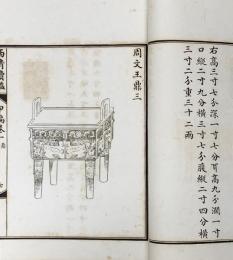 右高三寸七分深一寸七分耳高九分濶一寸
口縱二寸九分橫三寸七分腹縱二寸四分橫
三寸二分重三十二兩
周文王鼎三
西清續鑑 甲編卷一